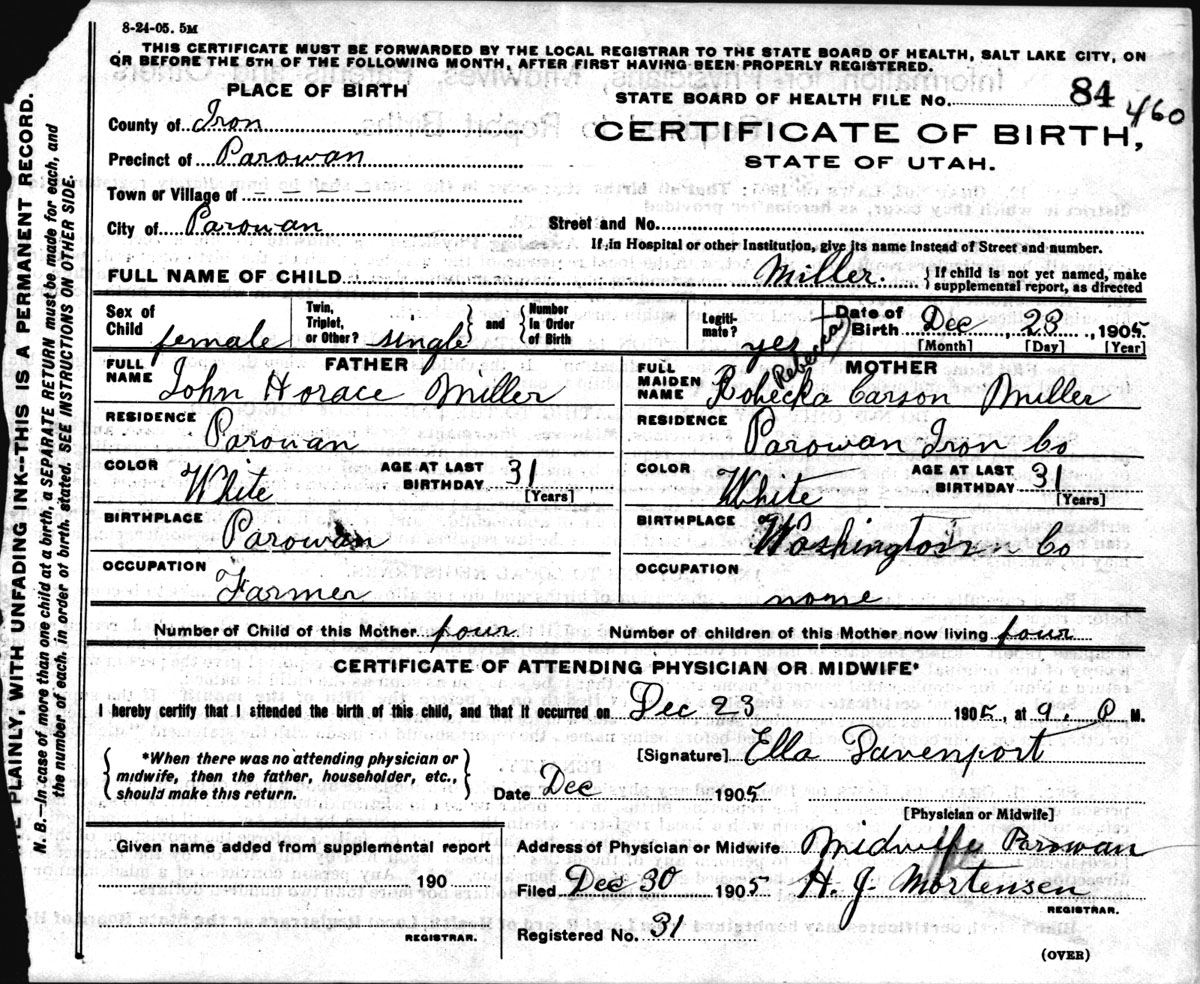 8-24-05. 5M
THIS CERTIFICATE MUST BE FORWARDED BY THE LOCAL REGISTRAR TO THE STATE BOARD OF HEALTH, SALT LAKE CITY, ON
OR BEFORE THE 5TH OF THE FOLLOWING MONTH, AFTER FIRST HAVING BEEN PROPERLY REGISTERED.
PLAINLY, WITH UNFADING INK--THIS IS A PERMANENT RECORD.
N. B.—In case of more than one child at a birth, a SEPARATE RETURN must be made for each, and
the number of each, in order of birth, stated. SEE INSTRUCTIONS ON OTHER SIDE.
PLACE OF BIRTH
STATE BOARD OF HEALTH FILE NO. 84 460
County of Iron
CERTIFICATE OF BIRTH,
Precinct of Parowan
STATE OF UTAH.
Town or Village of
City of Parowan
Street and No.
If in Hospital or other Institution, give its name instead of Street and number.
FULL NAME OF CHILD Miller. } If child is not yet named, make supplemental report, as directed
Sex of Child female
Twin, Triplet, or Other? single } and { Number in Order of Birth
Legitimate? yes
Date of Birth Dec 23, 1905
[Month] [Day] [Year]
FATHER
FULL NAME John Horace Miller
MOTHER
FULL MAIDEN NAME Rohecka (Rebecka) Carson Miller
RESIDENCE Parowan
RESIDENCE Parowan Iron Co
COLOR White AGE AT LAST BIRTHDAY 31 [Years]
COLOR White AGE AT LAST BIRTHDAY 31 [Years]
BIRTHPLACE Parowan
BIRTHPLACE Washington Co
OCCUPATION Farmer
OCCUPATION none
Number of Child of this Mother four Number of children of this Mother now living four
CERTIFICATE OF ATTENDING PHYSICIAN OR MIDWIFE*
I hereby certify that I attended the birth of this child, and that it occurred on Dec 23 1905, at 9, P M.
{ *When there was no attending physician or midwife, then the father, householder, etc., should make this return. }
[Signature] Ella Davenport
Date Dec 1905
[Physician or Midwife]
Given name added from supplemental report
190
REGISTRAR.
Address of Physician or Midwife Midwife Parowan
Filed Dec 30 1905 H. J. Mortensen
REGISTRAR.
Registered No. 31
(OVER)